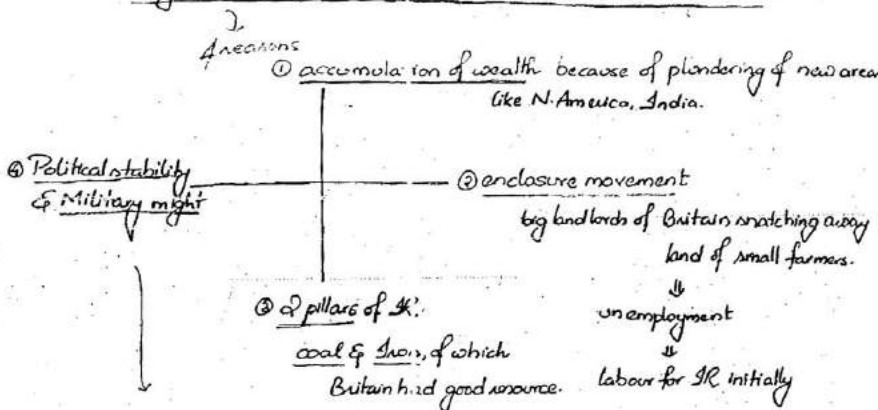 4 reasons
① accumulation of wealth because of plundering of new area
like N. America, India.
④ Political stability
& Military might
② enclosure movement
big landlords of Britain snatching away
land of small farmers.
⇓
unemployment
⇓
labour for IR initially
③ 2 pillars of IR:
coal & Iron, of which
Britain had good resource.